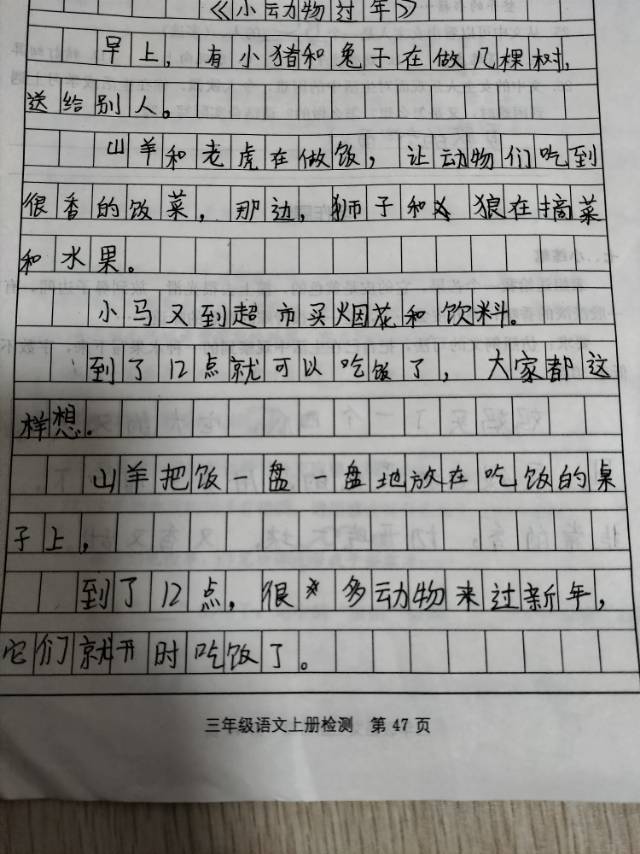 《小动物过年》
早上,有小猪和兔子在做几棵树,
送给别人。
山羊和老虎在做饭,让动物们吃到
很香的饭菜,那边,狮子和狼在摘菜
和水果。
小马又到超市买烟花和饮料。
到了12点就可以吃饭了,大家都这
样想。
山羊把饭一盘一盘地放在吃饭的桌
子上,
到了12点,很多动物来过新年,
它们就开时吃饭了。
三年级语文上册检测 第47页